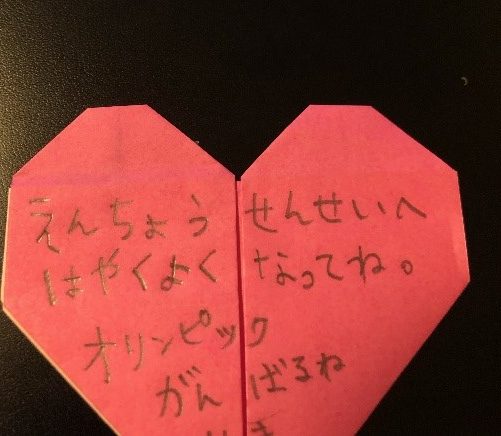 えんちょう せんせいへ
はやくよく なってね。
オリンピック
がんばるね